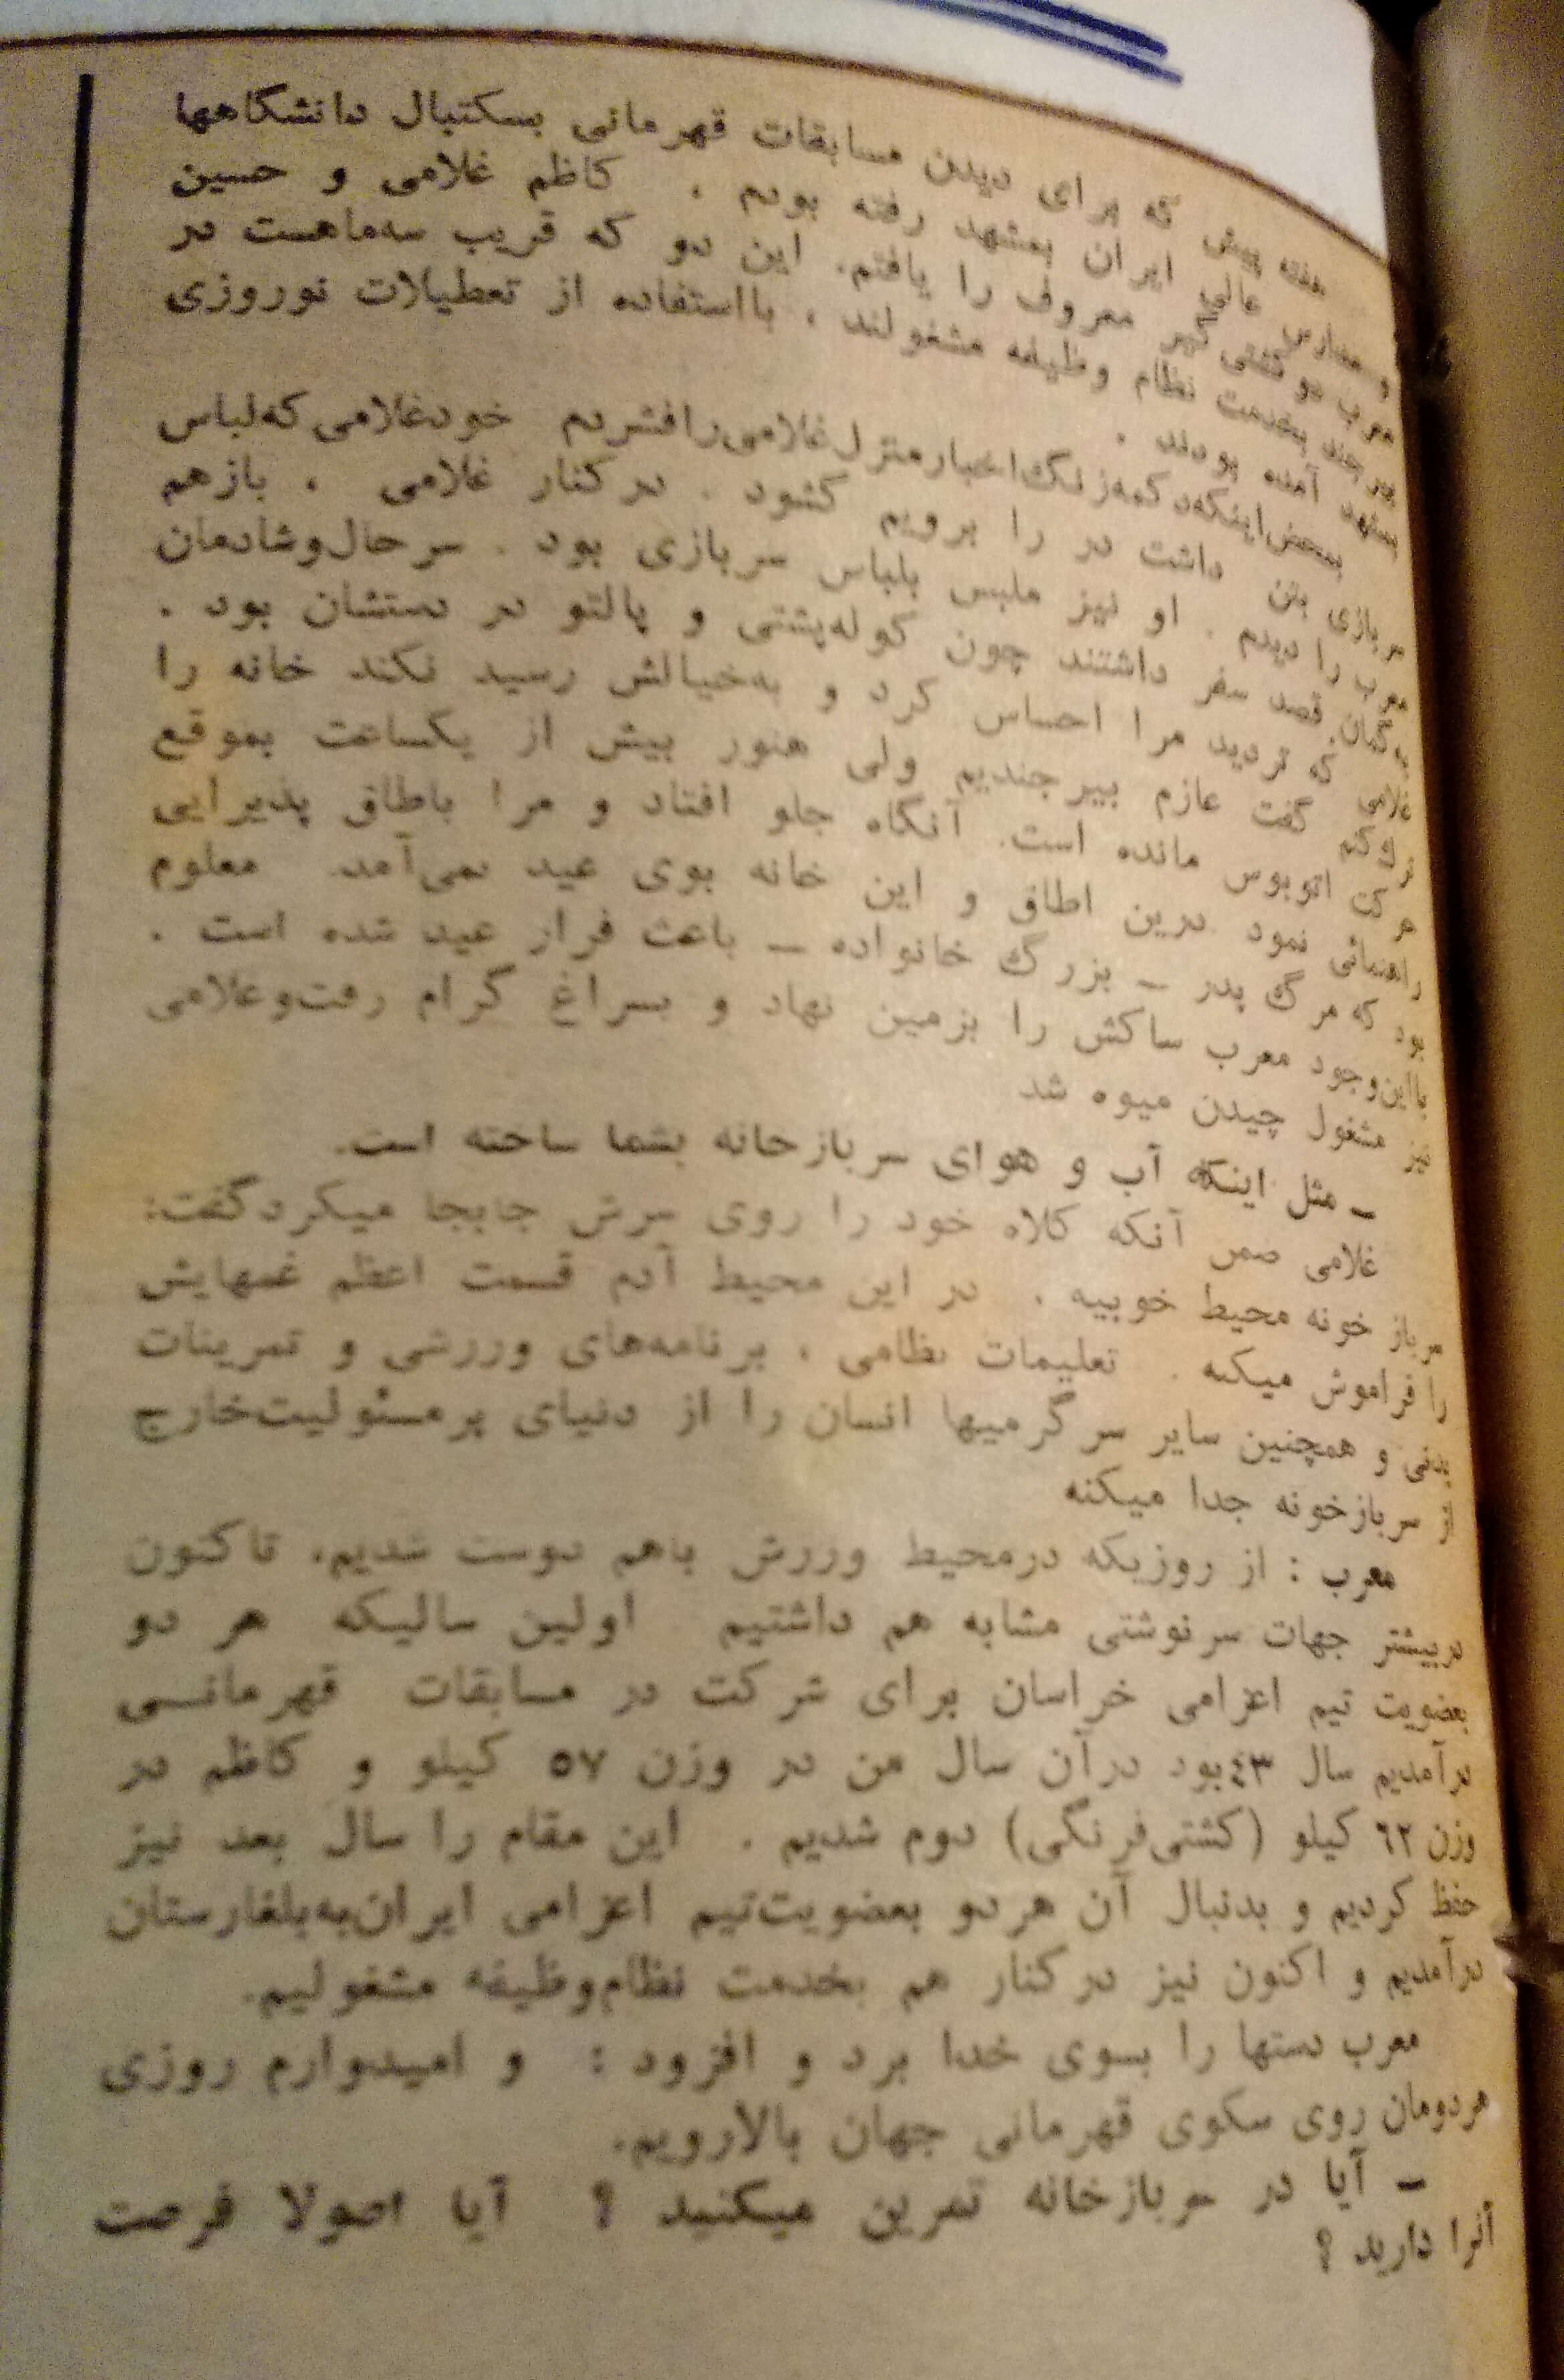 هفته پیش که برای دیدن مسابقات قهرمانی بسکتبال دانشگاهها
و مدارس عالی ایران بمشهد رفته بودم ، کاظم غلامی و حسین
معرب دو کشتی گیر معروف را یافتم. این دو که قریب سه‌ماهست در
بیرجند بخدمت نظام وظیفه مشغولند ، بااستفاده از تعطیلات نوروزی
بمشهد آمده بودند .
بمحض‌اینکه‌دکمه‌زنگ‌اخبارمنزل‌غلامی‌رافشردم خودغلامی‌که‌لباس
سربازی بتن داشت در را برویم گشود . در کنار غلامی ، بازهم
معرب را دیدم . او نیز ملبس بلباس سربازی بود . سرحال‌وشادمان
بی‌گمان قصد سفر داشتند چون کوله‌پشتی و پالتو در دستشان بود .
غلامی که تردید مرا احساس کرد و به‌خیالش رسید نکند خانه را
ترک کنم گفت عازم بیرجندیم ولی هنوز بیش از یکساعت بموقع
حرکت اتوبوس مانده است. آنگاه جلو افتاد و مرا باطاق پذیرایی
راهنمائی نمود درین اطاق و این خانه بوی عید نمی‌آمد. معلوم
بود که مرگ پدر – بزرگ خانواده – باعث فرار عید شده است .
بااین‌وجود معرب ساکش را بزمین نهاد و بسراغ گرام رفت‌وغلامی
نیز مشغول چیدن میوه شد
– مثل اینکه آب و هوای سربازخانه بشما ساخته است.
غلامی ضمن آنکه کلاه خود را روی سرش جابجا میکردگفت:
سرباز خونه محیط خوبیه . در این محیط آدم قسمت اعظم غمهایش
را فراموش میکنه . تعلیمات نظامی ، برنامه‌های ورزشی و تمرینات
بدنی و همچنین سایر سرگرمیها انسان را از دنیای پرمسئولیت‌خارج
از سربازخونه جدا میکنه
معرب : از روزیکه درمحیط ورزش باهم دوست شدیم، تاکنون
دربیشتر جهات سرنوشتی مشابه هم داشتیم . اولین سالیکه هر دو
بعضویت تیم اعزامی خراسان برای شرکت در مسابقات قهرمانـی
درآمدیم سال ۴۳بود درآن سال من در وزن ۵۷ کیلو و کاظم در
وزن ۶۲ کیلو (کشتی‌فرنگی) دوم شدیم . این مقام را سال بعد نیز
حفظ کردیم و بدنبال آن هردو بعضویت‌تیم اعزامی ایران‌به‌بلغارستان
درآمدیم و اکنون نیز درکنار هم بخدمت نظام‌وظیفه مشغولیم.
معرب دستها را بسوی خدا برد و افزود : و امیدوارم روزی
هردومان روی سکوی قهرمانی جهان بالارویم.
– آیا در سربازخانه تمرین میکنید ؟ آیا اصولا فرصت
آنرا دارید ؟